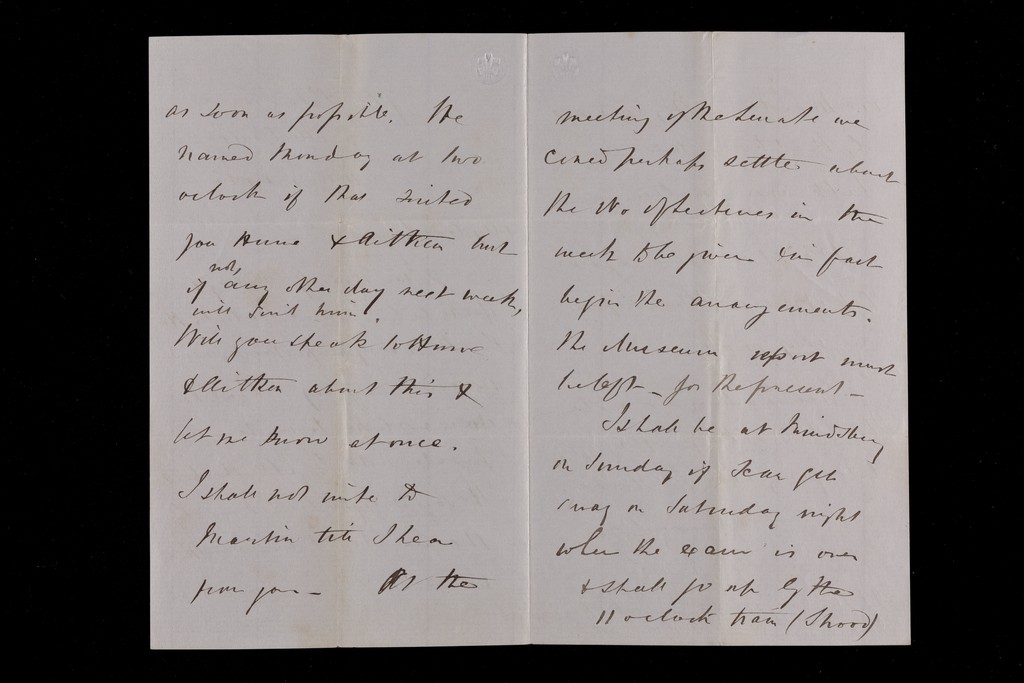 as soon as possible. He
named Monday at two
oclock if that suited
you Hume & Aitken but
not,
if any other day next week,
will suit him.
Will you speak to Hume
& Aitken about this &
let me know at once.
I shall not write to
Martin till I hear
from you – At the
meeting of the Senate we
could perhaps settle about
the No of lectures in the
week to be given & in fact
begin the arrangements.
The Museum report must
be left – for the present –
I shall be at
on Sunday if I can get
away on Saturday night
when the exam is over
& shall go up by the
11 oclock train (Strood)